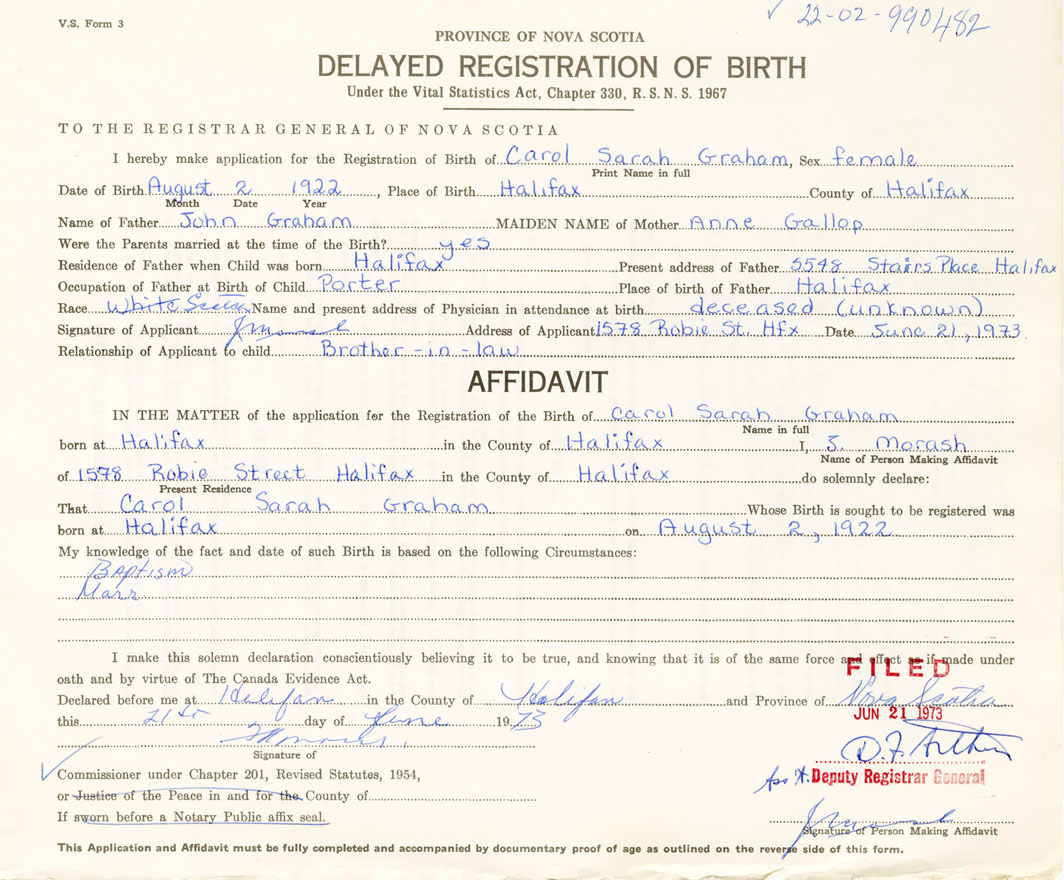 V.S. Form 3
22-02-990482
PROVINCE OF NOVA SCOTIA
DELAYED REGISTRATION OF BIRTH
Under the Vital Statistics Act, Chapter 330, R. S. N. S. 1967
TO THE REGISTRAR GENERAL OF NOVA SCOTIA
I hereby make application for the Registration of Birth of Carol Sarah Graham, Sex female
Print Name in full
Date of Birth August 2 1922, Place of Birth Halifax County of Halifax
Month Date Year
Name of Father John Graham MAIDEN NAME of Mother Anne Gallop
Were the Parents married at the time of the Birth? yes
Residence of Father when Child was born Halifax Present address of Father 5548 Stairs Place Halifax
Occupation of Father at Birth of Child Porter Place of birth of Father Halifax
Race White Name and present address of Physician in attendance at birth deceased (unknown)
Signature of Applicant Address of Applicant 1578 Robie St. Hfx Date June 21, 1973.
Relationship of Applicant to child Brother-in-law
AFFIDAVIT
IN THE MATTER of the application for the Registration of the Birth of Carol Sarah Graham
Name in full
born at Halifax in the County of Halifax I, Morash
Name of Person Making Affidavit
of 1578 Robie Street Halifax in the County of Halifax do solemnly declare:
Present Residence
That Carol Sarah Graham Whose Birth is sought to be registered was
born at Halifax on August 2, 1922
My knowledge of the fact and date of such Birth is based on the following Circumstances:
Baptism
Marr
I make this solemn declaration conscientiously believing it to be true, and knowing that it is of the same force and effect as if made under
FILED
oath and by virtue of The Canada Evidence Act.
Declared before me at Halifax in the County of Halifax and Province of Nova Scotia
this 21st day of June 1973
JUN 21 1973
Signature of
Commissioner under Chapter 201, Revised Statutes, 1954,
Deputy Registrar General
or Justice of the Peace in and for the County of
If sworn before a Notary Public affix seal.
Signature of Person Making Affidavit
This Application and Affidavit must be fully completed and accompanied by documentary proof of age as outlined on the reverse side of this form.